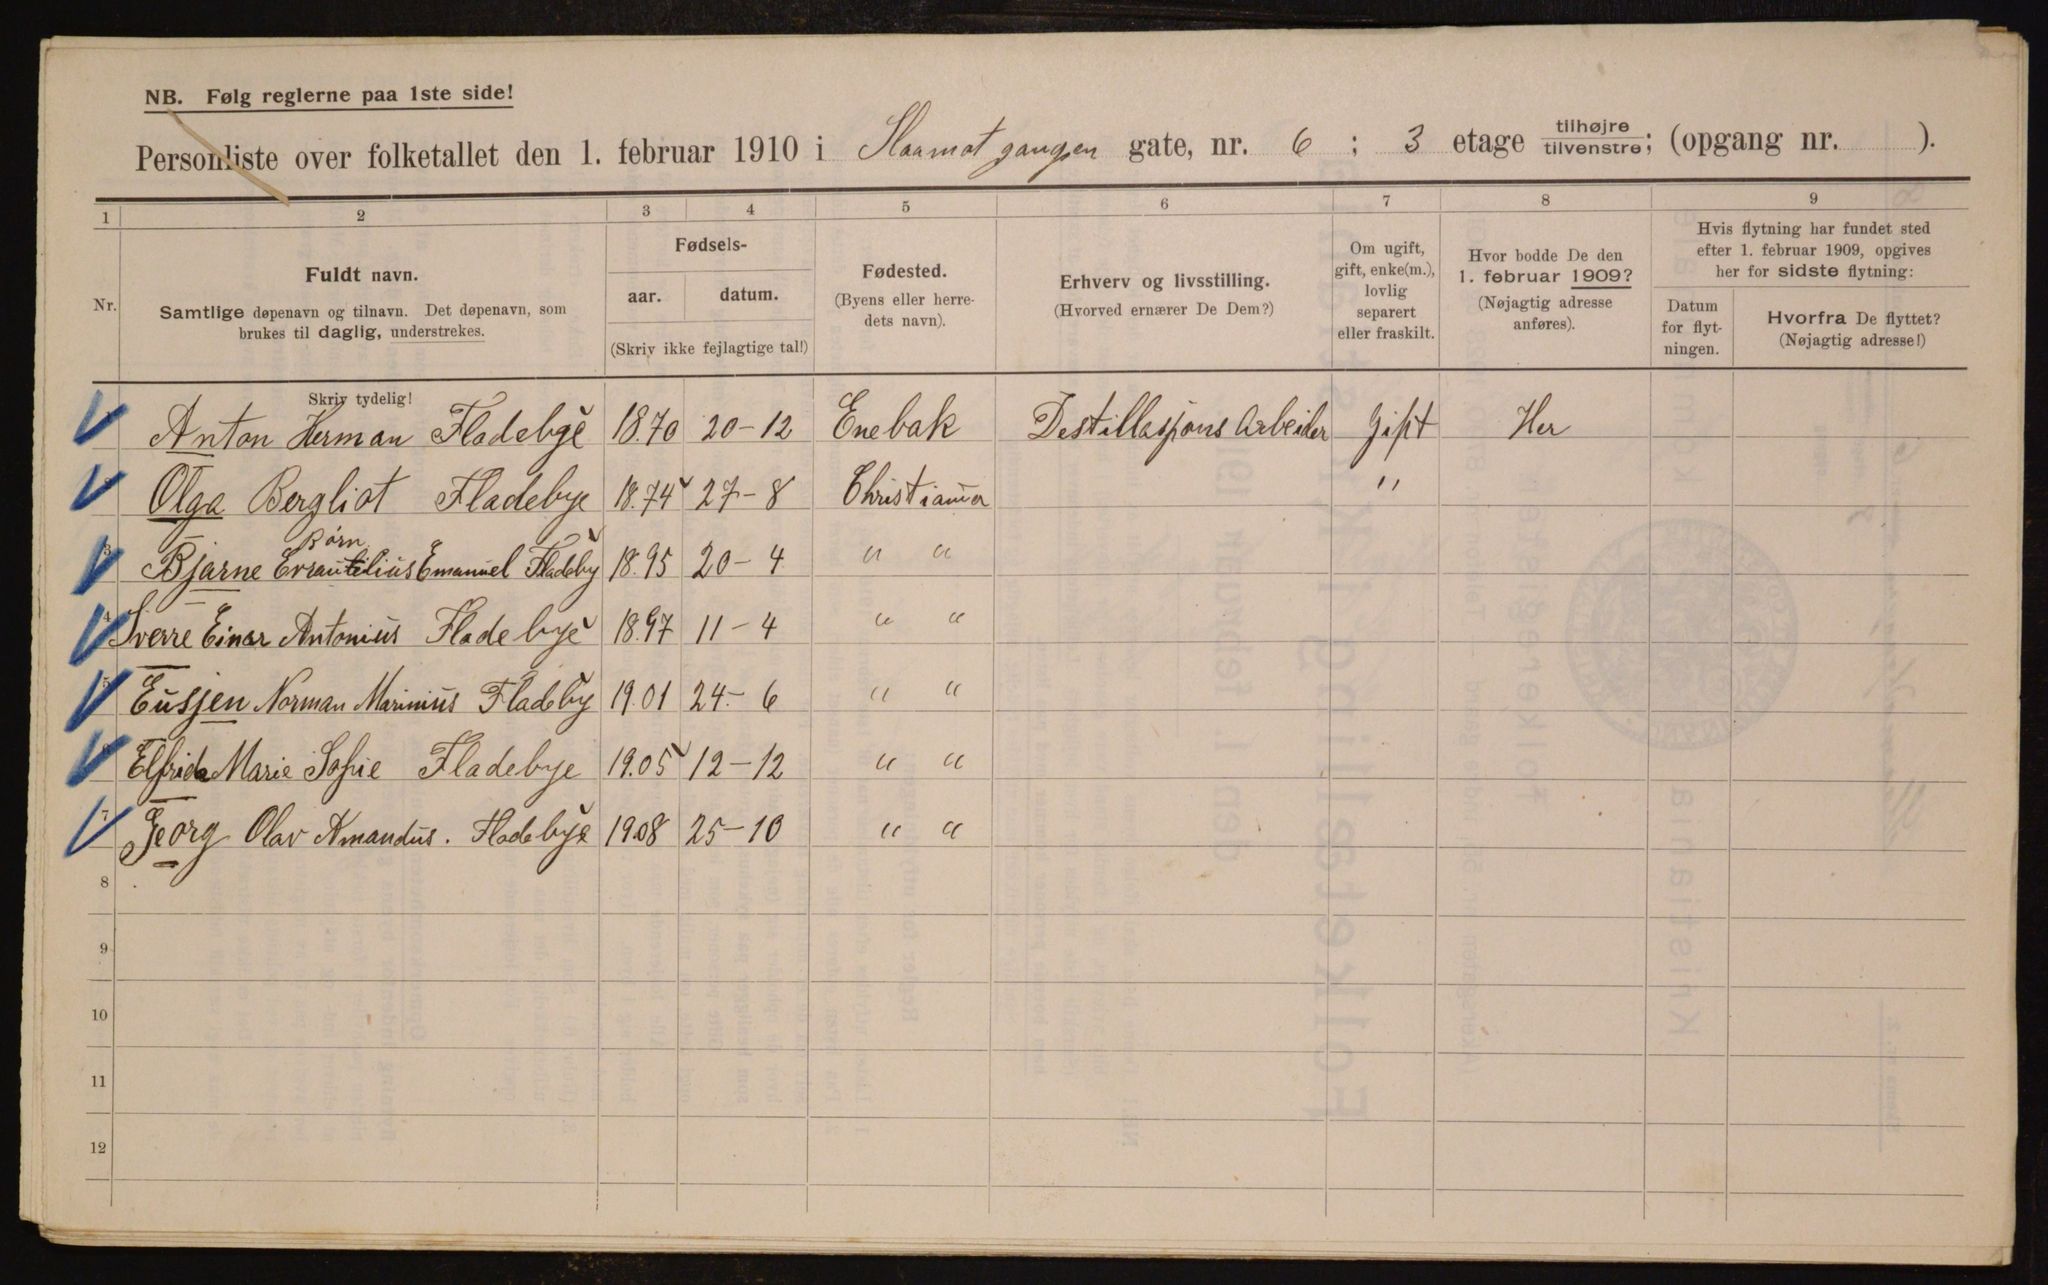 NB. Følg reglerne paa 1ste side!
Personliste over folketallet den 1. februar 1910 i Slaamotgangen gate, nr. 6 ; 3 etage tilhøjre tilvenstre; (opgang nr. ).
1 2 3 4 5 6 7 8 9
Nr.
Fuldt navn.
Samtlige døpenavn og tilnavn. Det døpenavn, som
brukes til daglig, understrekes.
Fødsels-
aar. datum.
(Skriv ikke fejlagtige tal!)
Fødested.
(Byens eller herre-
dets navn).
Erhverv og livsstilling.
(Hvorved ernærer De Dem?)
Om ugift,
gift, enke(m.),
lovlig
separert
eller fraskilt.
Hvor bodde De den
1. februar 1909?
(Nøjagtig adresse
anføres).
Hvis flytning har fundet sted
efter 1. februar 1909, opgives
her for sidste flytning:
Datum
for flyt-
ningen.
Hvorfra De flyttet?
(Nøjagtig adresse!)
Skriv tydelig!
Anton Herman Fladebye 18.70 20-12 Enebak Destillasjons Arbeider gift Her
Olga Bergliot Fladebye 18.74 27-8 Christiania "
Børn
3 Bjarne Emanuel Fladeby 18.95 20-4 " "
4 Sverre Einar Antonius Fladebye 18.97 11-4 " "
5 Eusjen Norman Marinius Fladeby 19.01 24-6 " "
6 Elfrida Marie Sofie Fladebye 19.05 12-12 " "
7 Georg Olav Amandus. Fladebye 19.08 25-10 " "
8
9
10
11
12